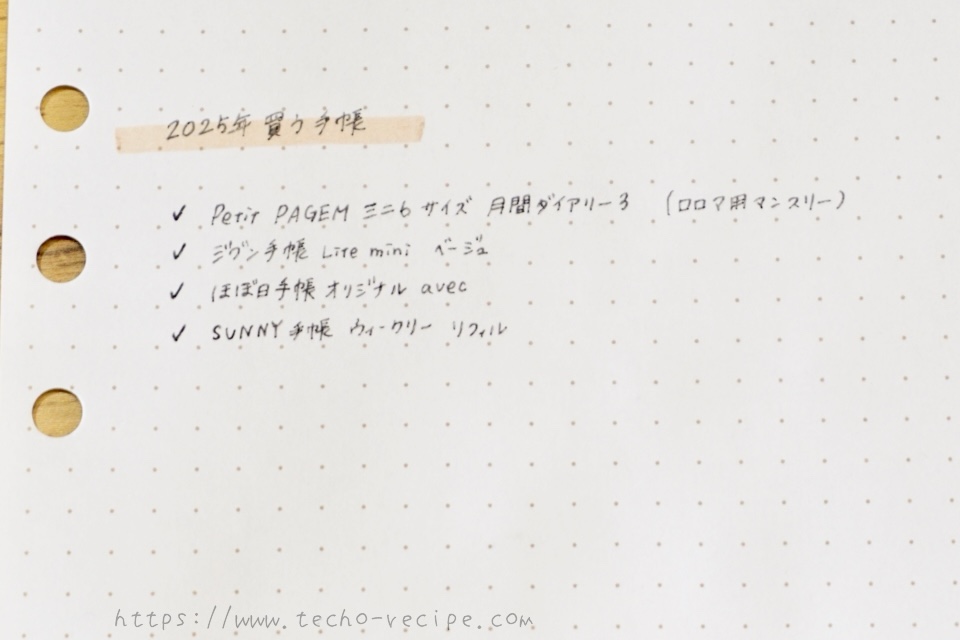 2025年 買う手帳
✓ Petit PAGEM ミニ6 サイズ 月間ダイアリー3 （ロロマ用マンスリー）
✓ ジブン手帳 Lite mini ベージュ
✓ ほぼ日手帳 オリジナル avec
✓ SUNNY手帳 ウィークリー リフィル
https://www.techo-recipe.com